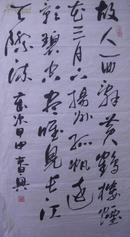 故人西辞黄鹤楼烟
花三月下扬州孤帆远
影碧空尽唯见长江
天际流 岁次甲申春